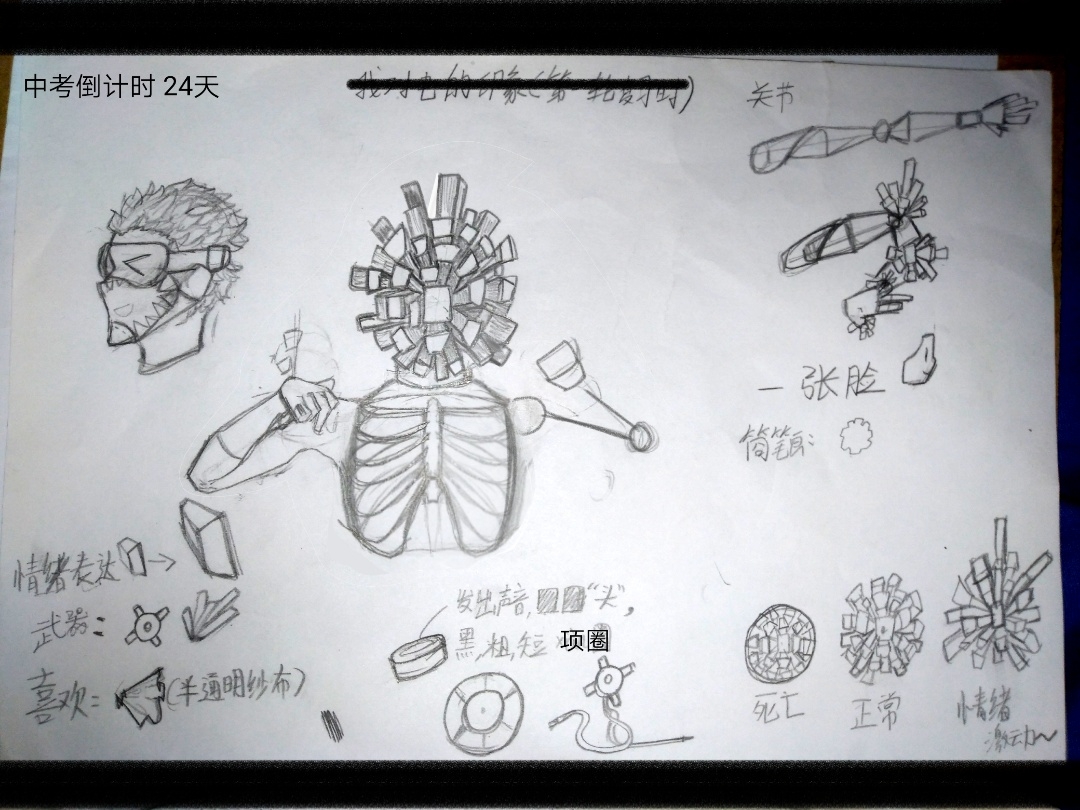 中考倒计时 24天
我对它的印象(第一轮复习时)
关节
一张脸
简笔画:
情绪表达
武器:
喜欢:
(半透明纱布)
发出声音,
"头",
黑,粗,短
项圈
死亡
正常
情绪
激动~